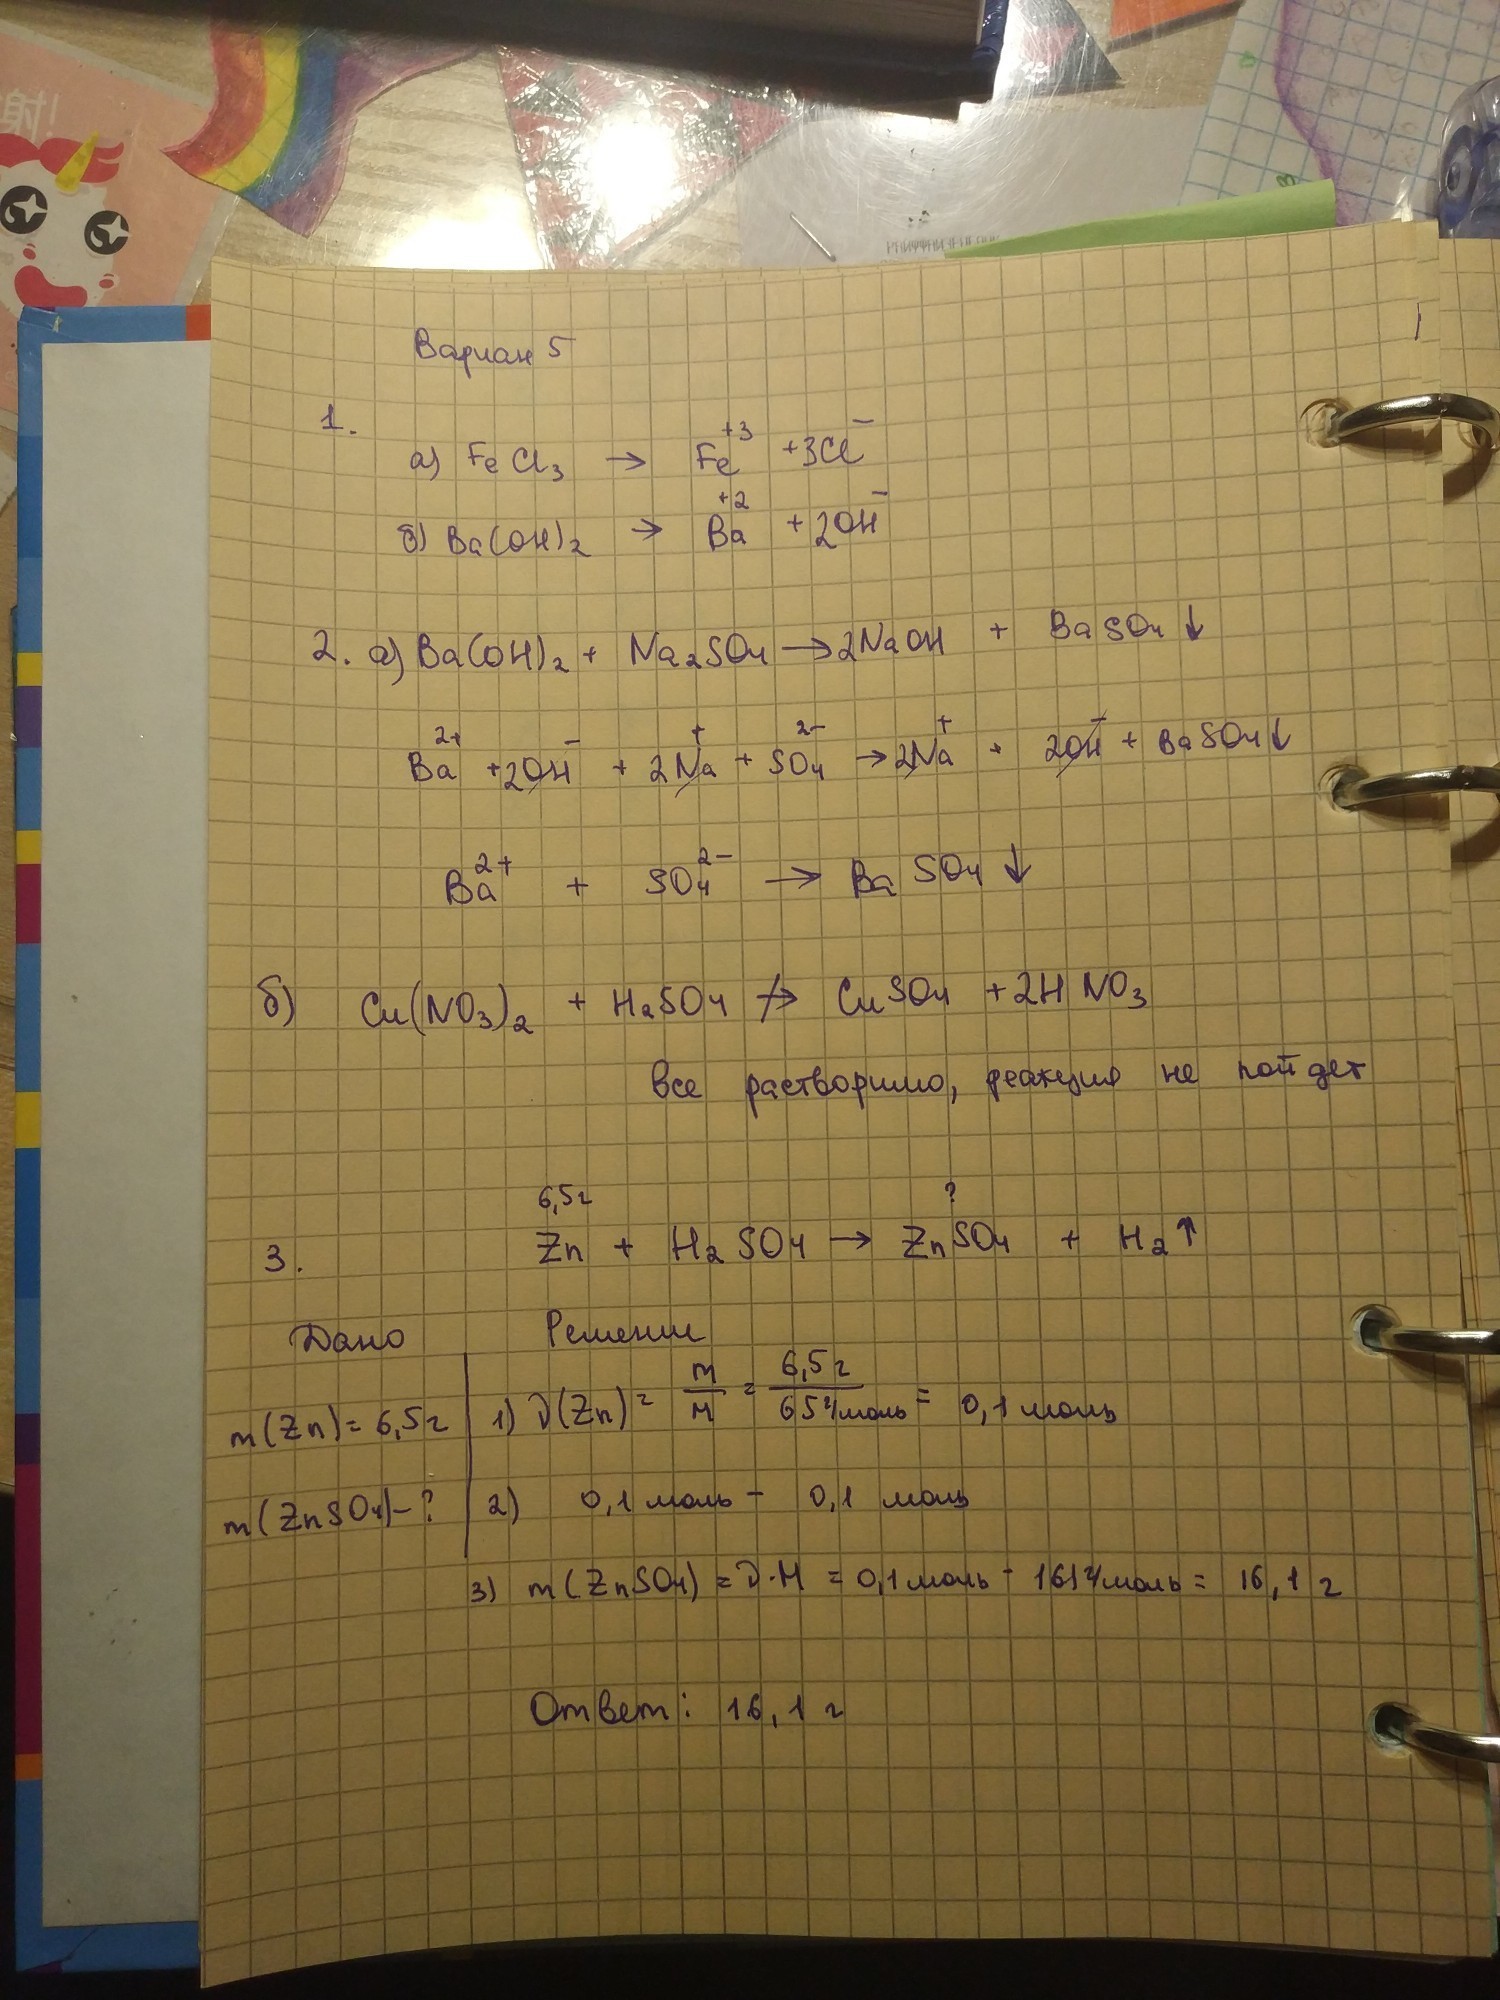 Вариан 5
1.
а) FeCl₃ → Fe⁺³ + 3Cl⁻
б) Ba(OH)₂ → Ba⁺² + 2OH⁻
2. а) Ba(OH)₂ + Na₂SO₄ → 2NaOH + BaSO₄↓
Ba²⁺ + 2OH⁻ + 2Na⁺ + SO₄²⁻ → 2Na⁺ + 2OH⁻ + BaSO₄↓
Ba²⁺ + SO₄²⁻ → BaSO₄↓
б) Cu(NO₃)₂ + H₂SO₄ ↛ CuSO₄ + 2HNO₃
все растворимо, реакция не пойдет
6,5г ?
3. Zn + H₂SO₄ → ZnSO₄ + H₂↑
Дано Решение
m(Zn) = 6,5г 1) ν(Zn) = m/M = 6,5г/65г/моль = 0,1 моль
m(ZnSO₄) - ? 2) 0,1 моль - 0,1 моль
3) m(ZnSO₄) = ν·M = 0,1 моль · 161г/моль = 16,1 г
Ответ: 16,1 г